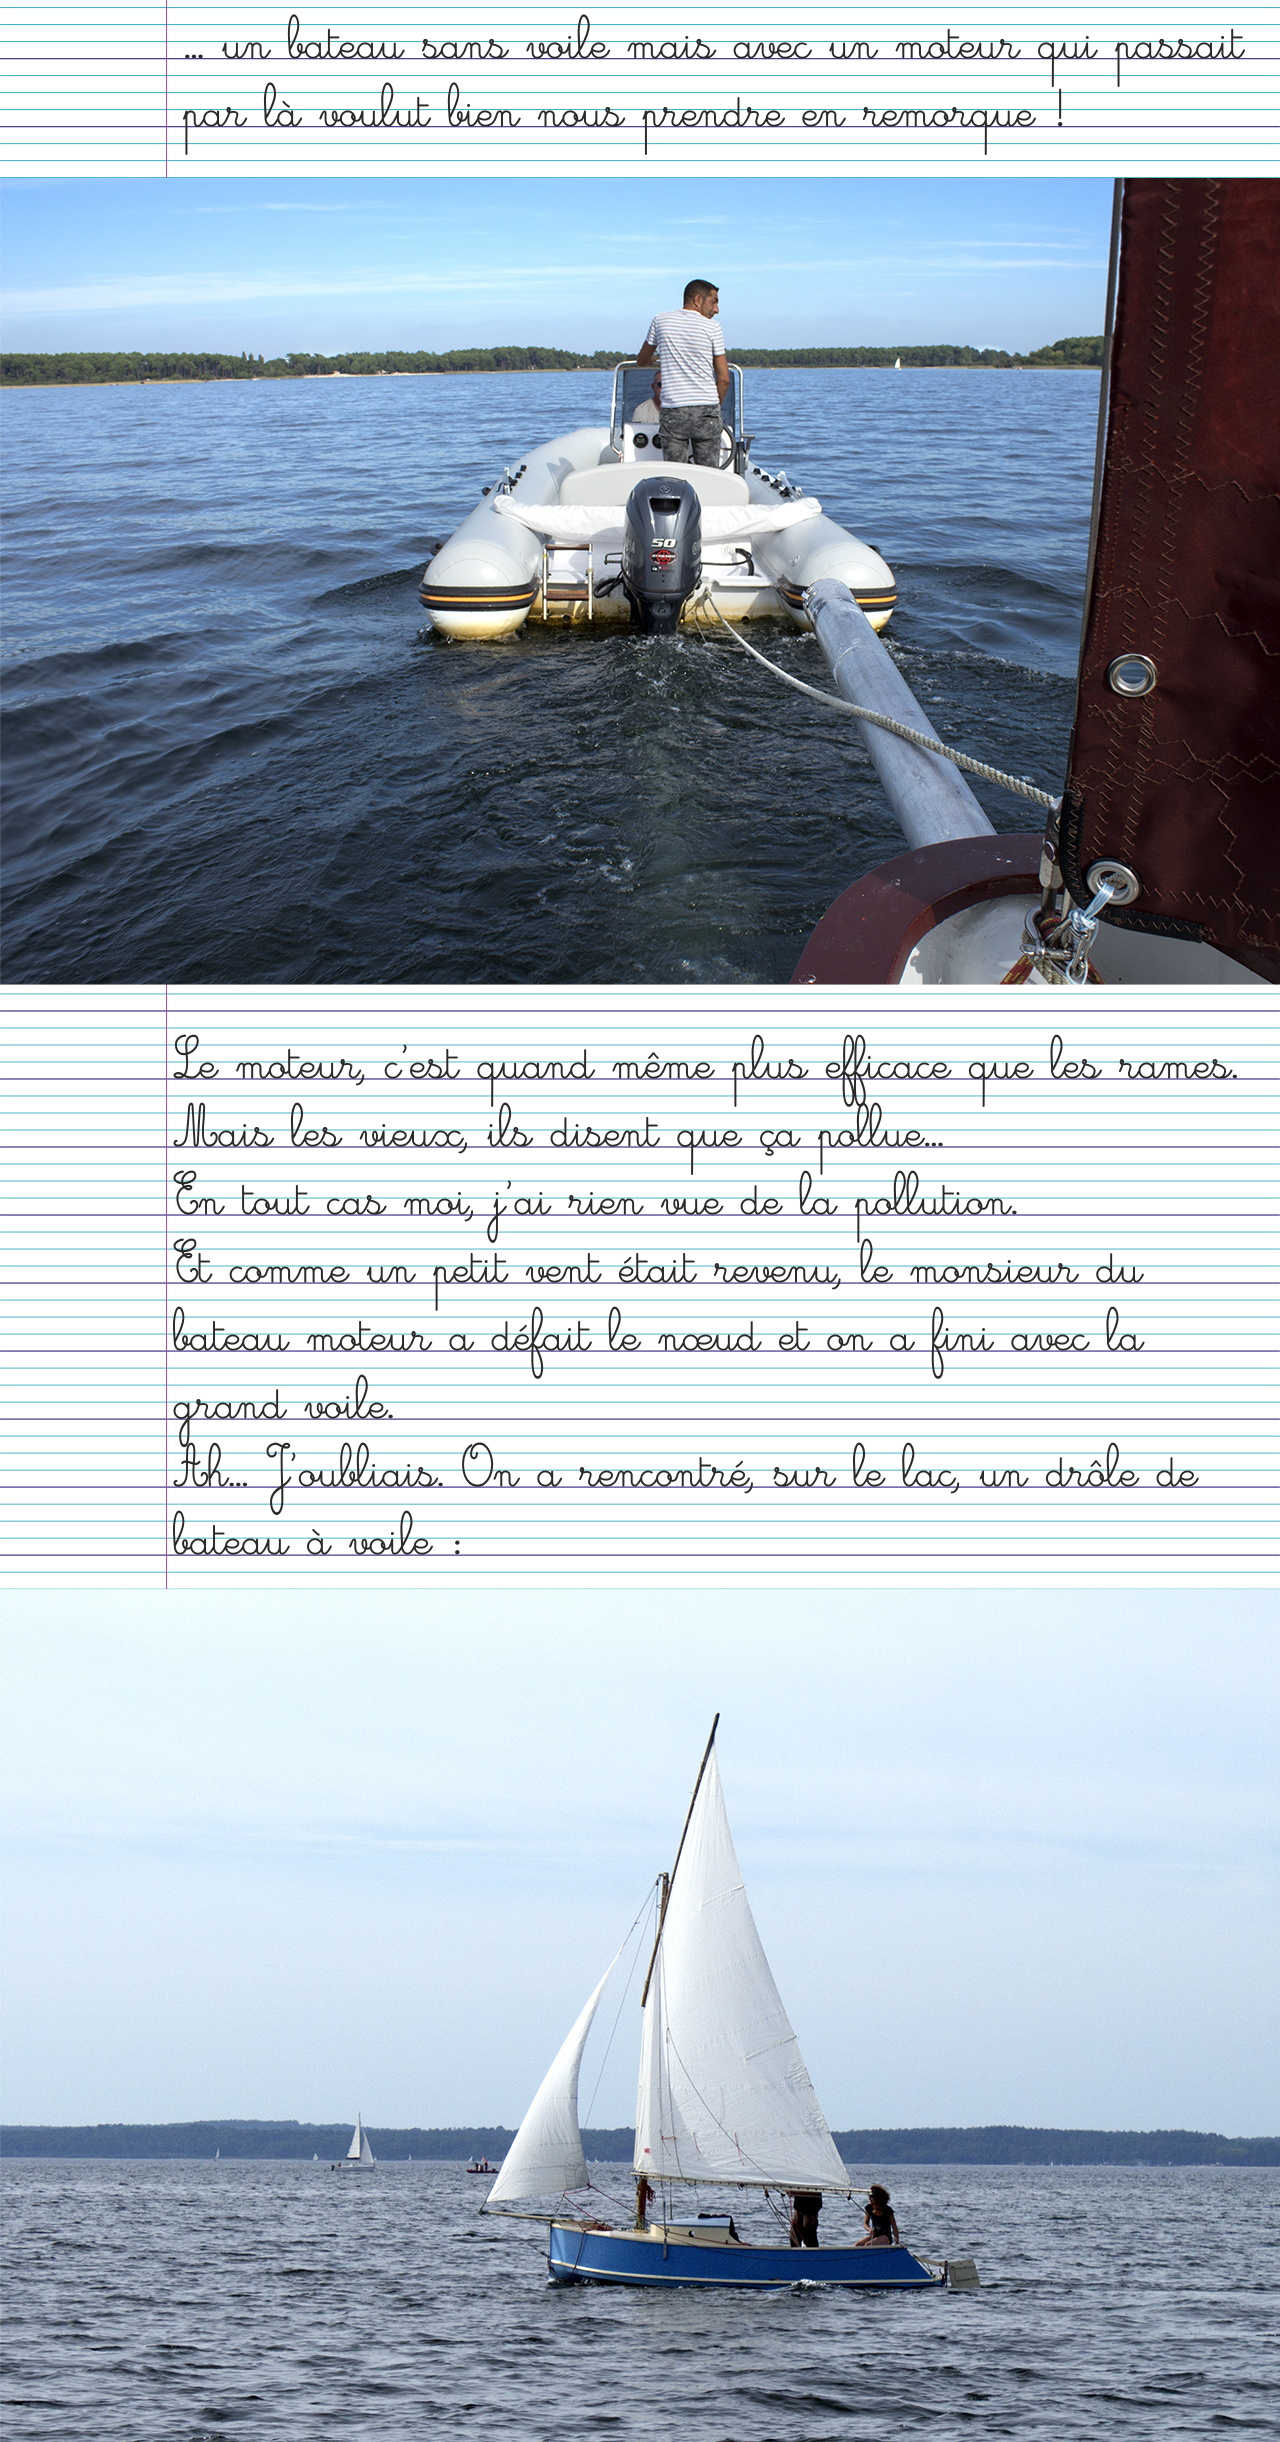 ... un bateau sans voile mais avec un moteur qui passait
par là voulut bien nous prendre en remorque !
50
Le moteur, c'est quand même plus efficace que les rames.
Mais les vieux, ils disent que ça pollue...
En tout cas moi, j'ai rien vue de la pollution.
Et comme un petit vent était revenu, le monsieur du
bateau moteur a défait le nœud et on a fini avec la
grand voile.
Ah... J'oubliais. On a rencontré, sur le lac, un drôle de
bateau à voile :